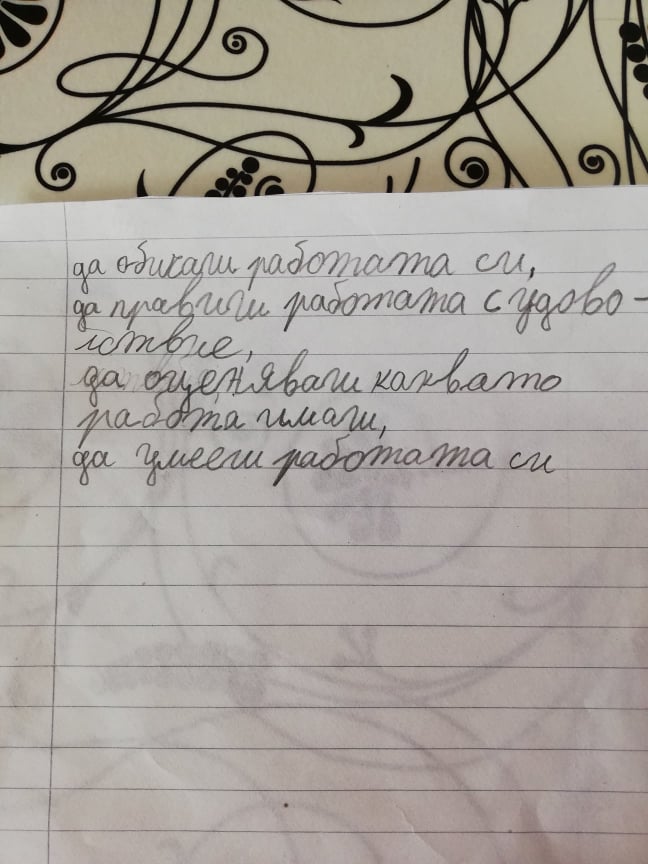 да обикаш работата си,
да правиш работата с удово-
лствие,
да оценяваш каквато
работа имаш,
да умееш работата си